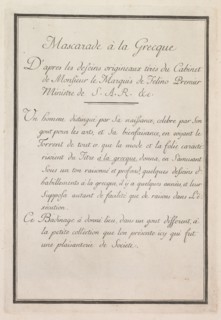 Mascarade à la Grecque
D'apres les desseins origineaux tirés du Cabinet
de Monsieur le Marquis de Felino Premier
Ministre de S. A. R. &c.
Un homme distingué par Sa naissance, celebre par Son
gout pour les arts, et Sa bienfaisance, en voyant le
Torrent de tout ce que la mode et la folie
du Titre à la grecque, donna, en S'amusant
Sous un ton raisonné et profond quelques desseins d'
habillements à la grecque, il y a quelques années, et leur
Supposa autant de fausseté que de raison dans L'e-
xécution.
Ce Badinage à donné lieu, dans un gout different, à
la petite collection que l'on présente icy qui fut
une plaisanterie de Societé.